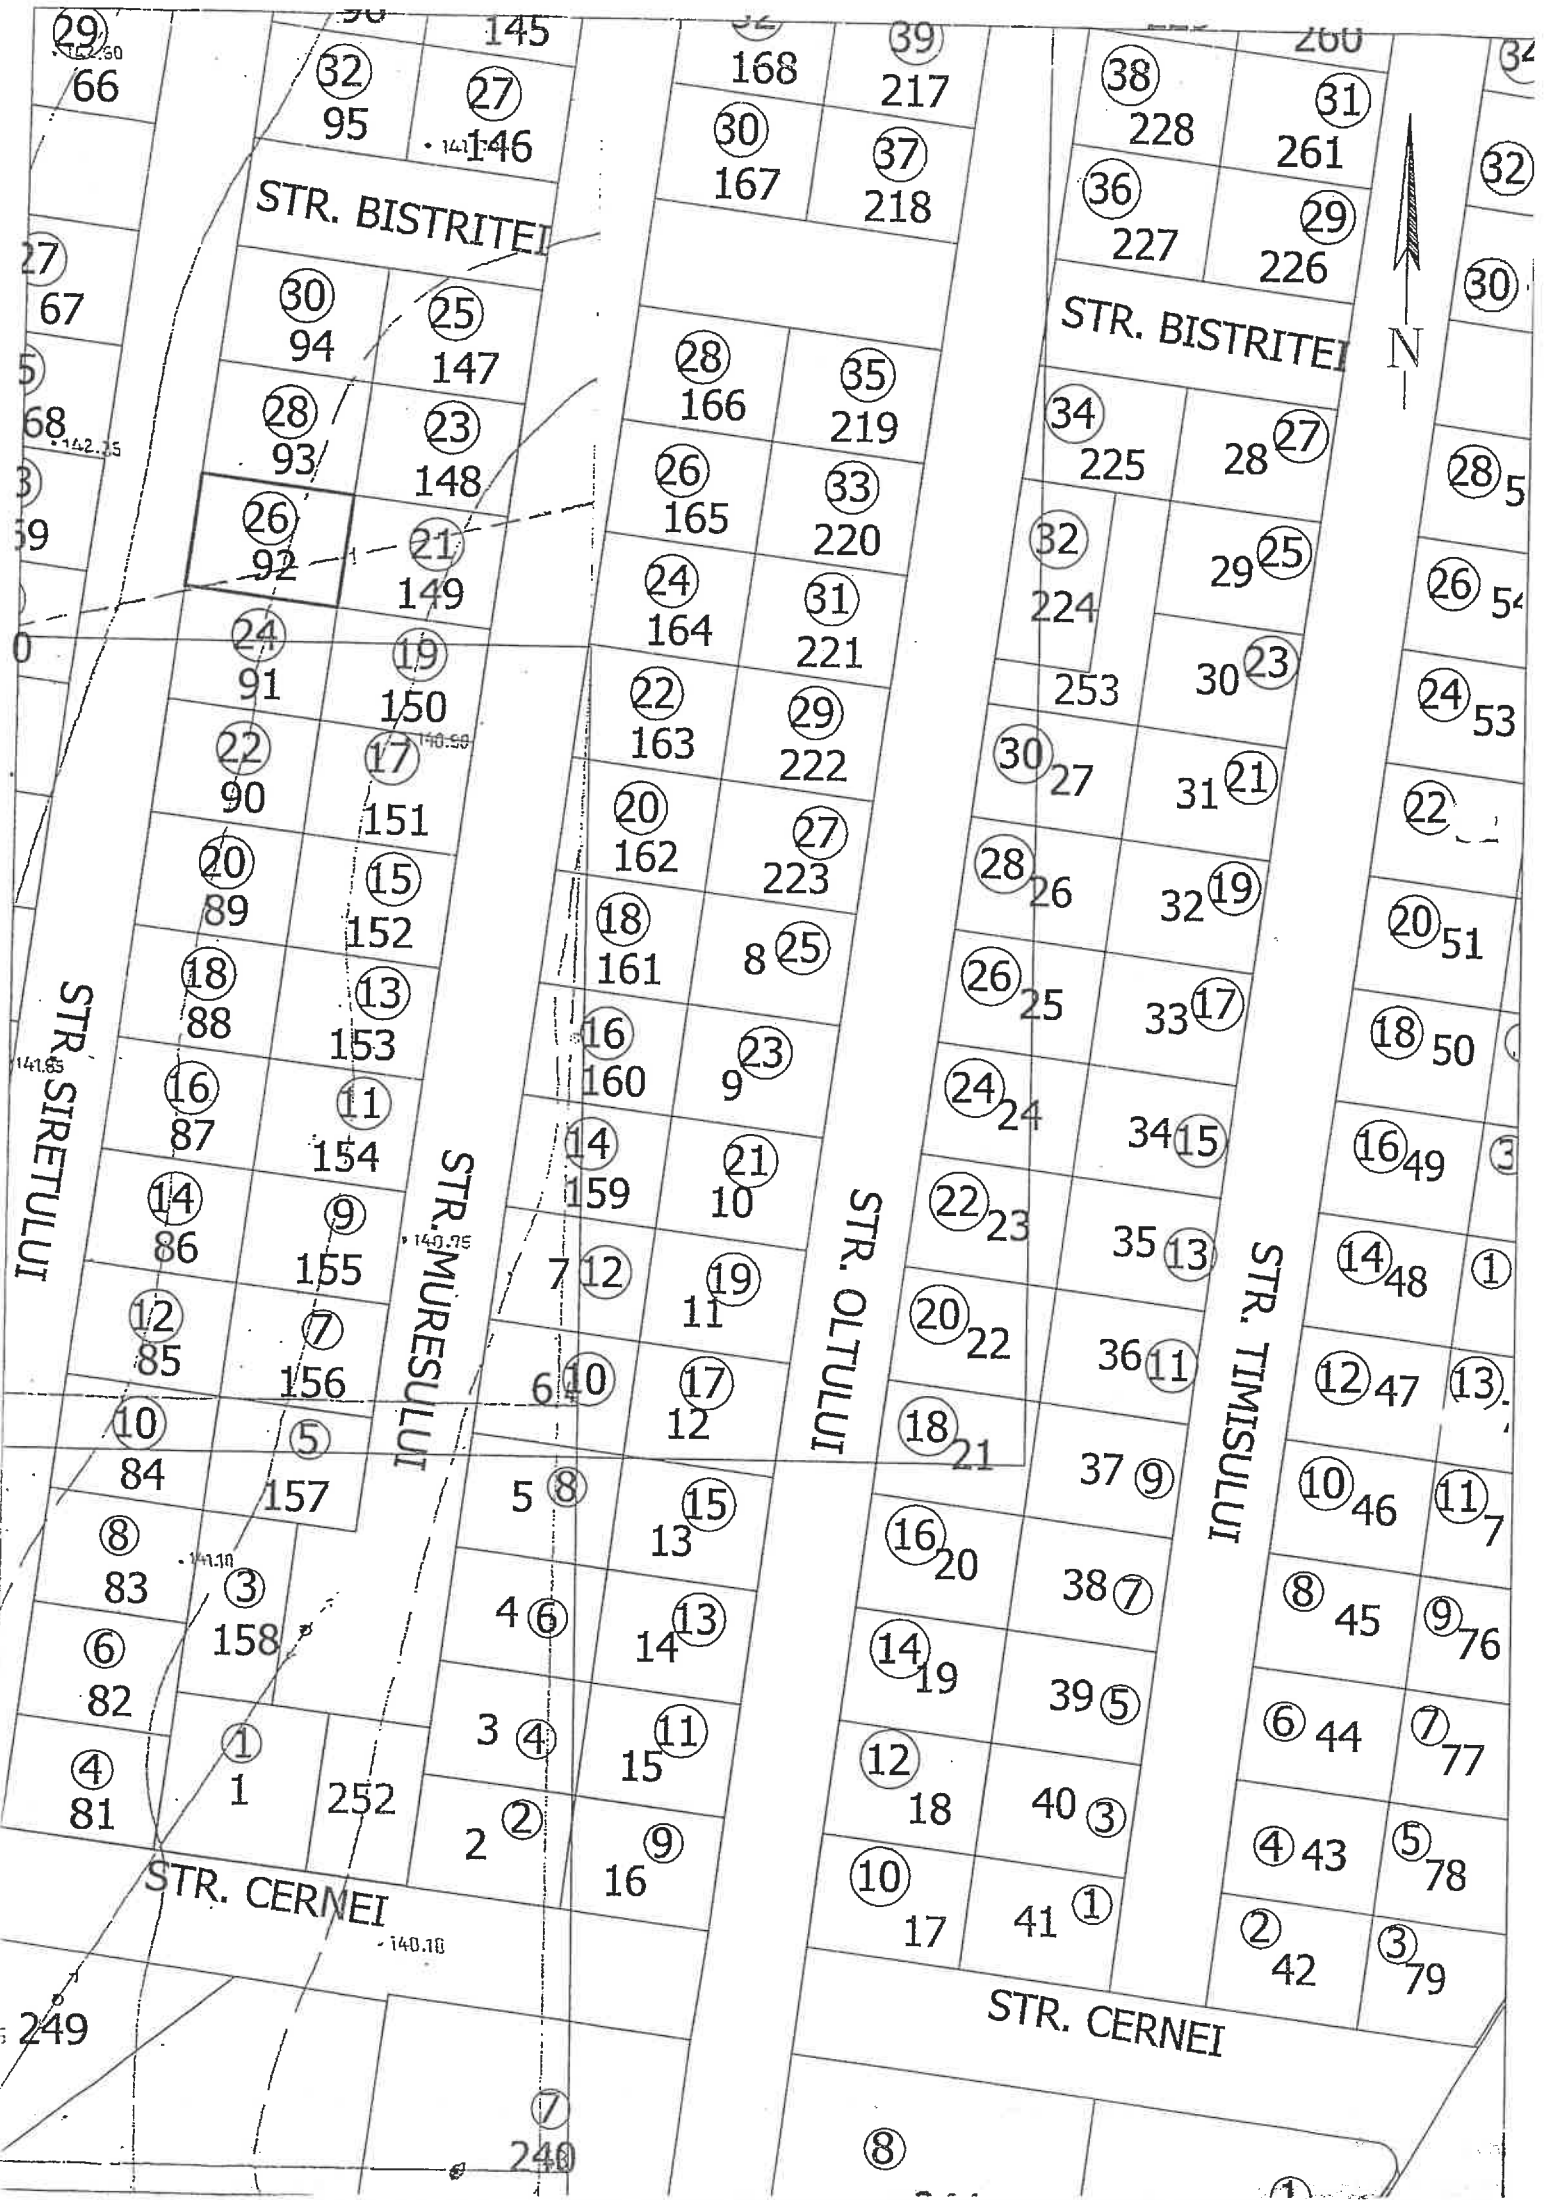 29
142.60
66
27
67
68
142.35
32
95
145
27
146
STR. BISTRITEI
30
94
25
147
28
93
23
148
26
92
21
149
24
91
19
150
140.90
22
90
17
151
20
89
15
152
18
88
13
153
16
87
11
154
14
86
9
155
12
85
7
156
10
84
5
157
8
83
141.10
3
158
6
82
4
81
1
1
252
STR. SIRETULUI
141.85
STR. MURESULUI
140.95
STR. CERNEI
140.10
249
7
240
168
39
217
30
167
37
218
28
166
35
219
26
165
33
220
24
164
31
221
22
163
29
222
20
162
27
223
18
161
8 25
16
160
23
9
14
159
21
10
7 12
19
11
6 10
17
12
5 8
15
13
4 6
13
14
3 4
11
15
2 2
9
16
STR. OLTULUI
260
38
228
31
261
36
227
29
226
STR. BISTRITEI
N
34
225
28 27
32
224
29 25
253
30 23
30 27
31 21
28 26
32 19
26 25
33 17
24 24
34 15
22 23
35 13
20 22
36 11
18 21
37 9
16 20
38 7
14 19
39 5
12 18
40 3
10 17
41 1
STR. TIMISULUI
STR. CERNEI
8
1
34
32
30
28
26
24 53
22
20 51
18 50
16 49
14 48
12 47
13
10 46
11
8 45
9 76
6 44
7 77
4 43
5 78
2 42
3 79